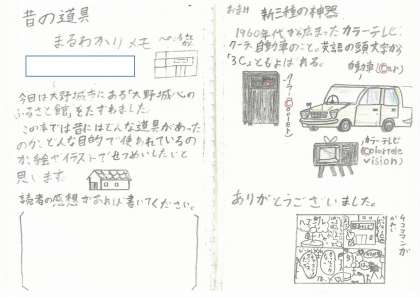 昔の道具
まるわかりメモ
今日は大野城市にある「大野城心の
ふるさと館」をたずねました。
この本では昔にはどんな道具があった
のか、どんな目的で使われている
のか、絵やイラストでせつめいしたいと
思います。
読者の感想があれば書いてください。
おまけ 新三種の神器
1960年代から広まったカラーテレビ
クーラー、自動車のこと。英語の頭文字から
「3C」ともよばれる。
自動車(Car)
クーラー(Cooler)
カラーテレビ
(Color tele
vision)
ありがとうございました。
4コママンガ